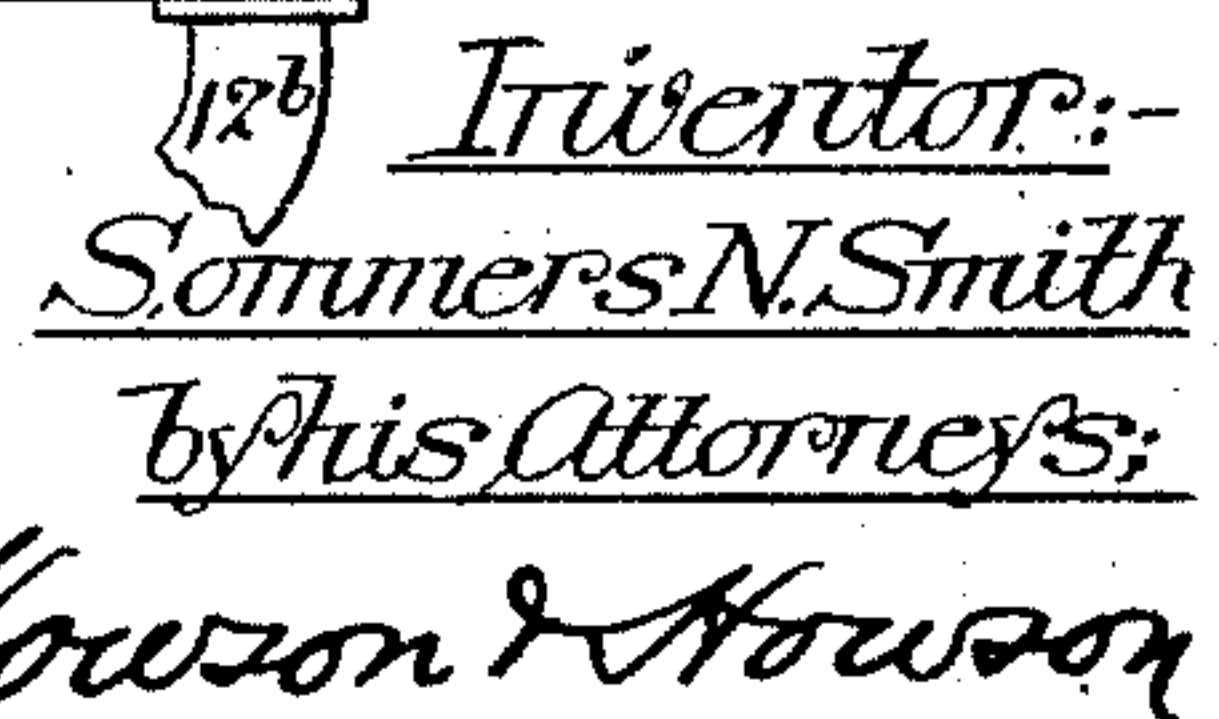 12b
Inventor:-
Sommers N. Smith
by his Attorneys;
Howson & Howson